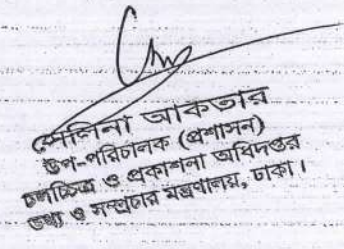 সেলিনা আকতার
উপ-পরিচালক (প্রশাসন)
চলচ্চিত্র ও প্রকাশনা অধিদপ্তর
তথ্য ও সম্প্রচার মন্ত্রণালয়, ঢাকা।